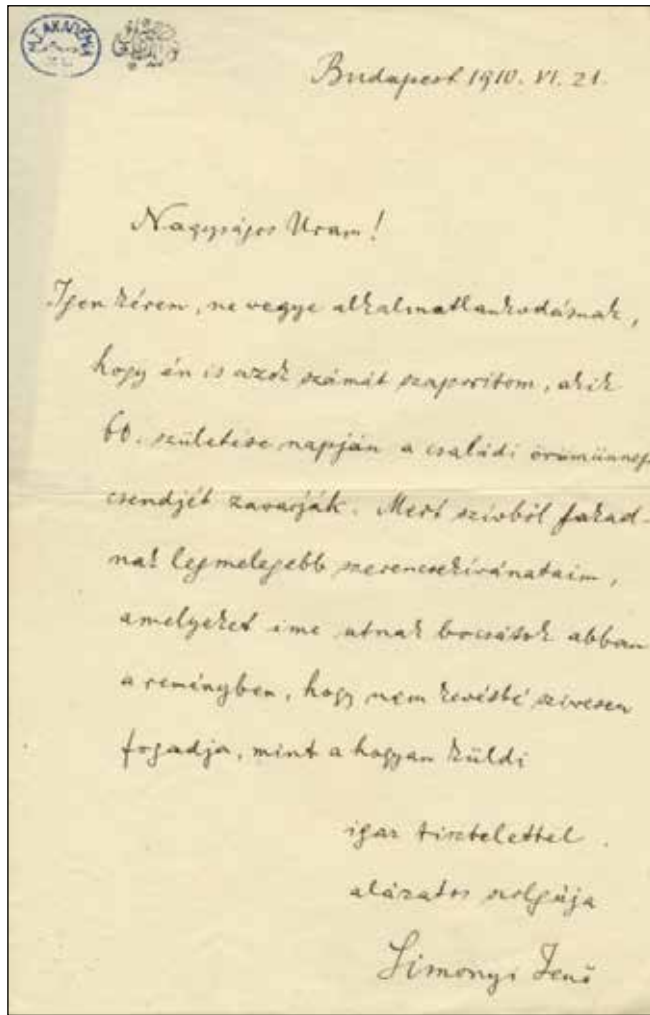 M. T. AKADÉMIA
Budapest 1910. VI. 21.
Nagyságos Uram!
Igen kérem, ne vegye alkalmatlankodásnak,
hogy én is azok számát szaporitom, akik
60. születése napján a családi örömünnep
csendjét zavarják. Mert szívből fakad-
nak legmelegebb szerencsekívánataim,
amelyeket ime utnak bocsátok abban
a reményben, hogy nem kevésbé szivesen
fogadja, mint a hogyan küldi
igaz tisztelettel
alázatos szolgája
Simonyi Jenő